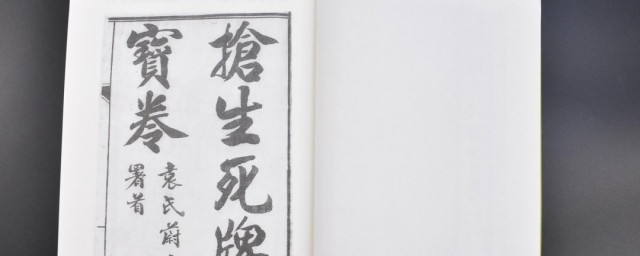 搶生死牌
寶卷
袁氏蔚
署首